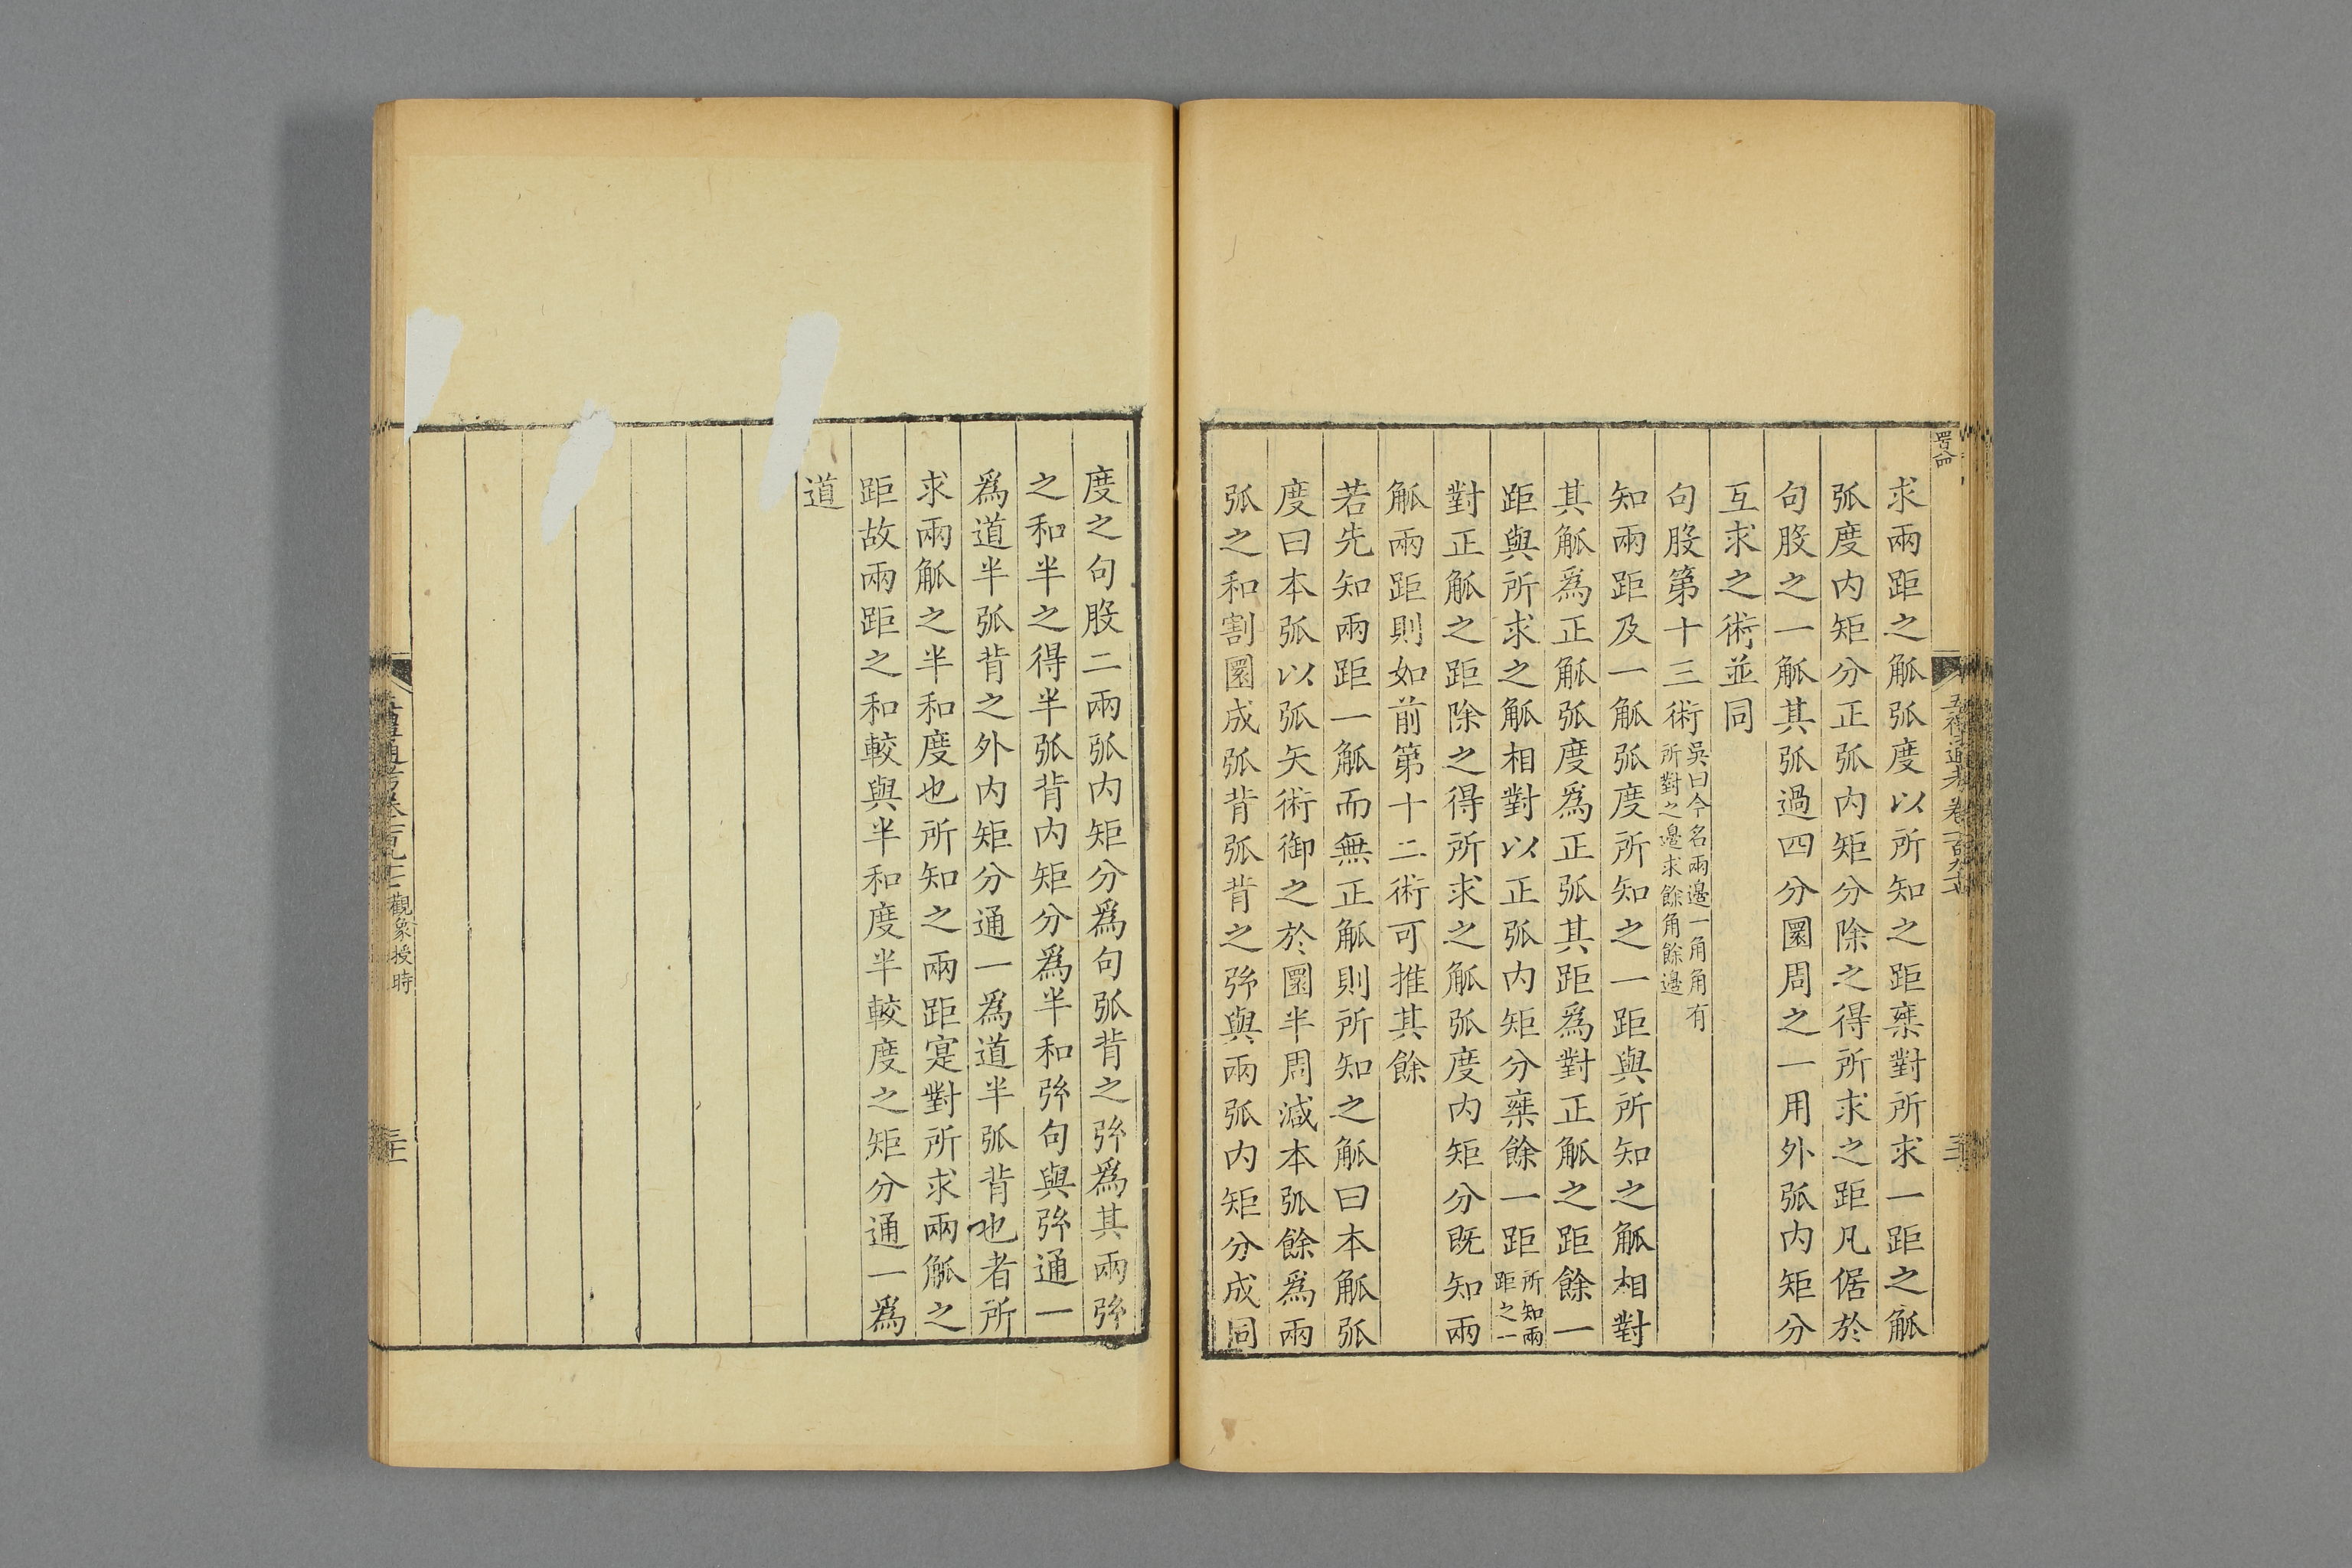 求兩距之觚弧度以所知之距椉對所求一距之觚
弧度内矩分正弧内矩分除之得所求之距凡倨於
句股之一觚其弧過四分圜周之一用外弧内矩分
互求之術並同
句股第十三術吳曰今名兩邊一角角有
所對之邊求餘角餘邊
知兩距及一觚弧度所知之一距與所知之觚相對
其觚爲正觚弧度爲正弧其距爲對正觚之距餘一
距與所求之觚相對以正弧内矩分椉餘一距所知兩
距之一
對正觚之距除之得所求之觚弧度内矩分既知兩
觚兩距則如前第十二術可推其餘
若先知兩距一觚而無正觚則所知之觚曰本觚弧
度曰本弧以弧矢術御之於圜半周減本弧餘爲兩
弧之和割圜成弧背弧背之弥與兩弧内矩分成同
度之句股二兩弧内矩分爲句弧背之弥爲其兩弥
之和半之得半弧背内矩分爲半和弥句與弥通一
爲道半弧背之外内矩分通一爲道半弧背也者所
求兩觚之半和度也所知之兩距寔對所求兩觚之
距故兩距之和較與半和度半較度之矩分通一爲
道
五禮通考卷一百九十
觀象授時